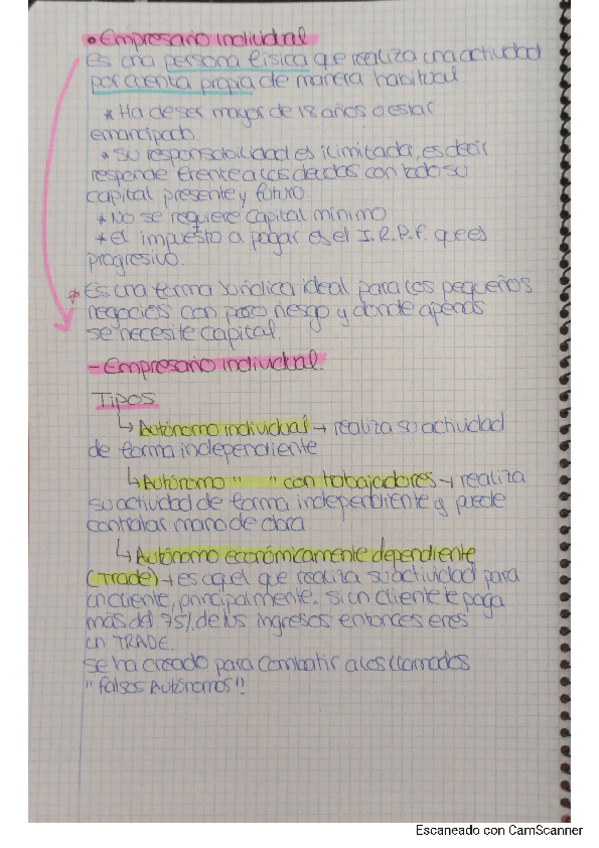 • Empresario individual
es una persona física que realiza una actividad
por cuenta propia de manera habitual
* Ha de ser mayor de 18 años o estar
emancipado.
* su responsabilidad es ilimitada, es decir
responde frente a las deudas con todo su
capital presente y futuro.
* No se requiere capital mínimo
* el impuesto a pagar es el I.R.P.F. que es
progresivo.
* Es una forma jurídica ideal para los pequeños
negocios con poco riesgo y donde apenas
se necesite capital.
- Empresario individual.
Tipos
↳ Autónomo individual → realiza su actividad
de forma independiente
↳ Autónomo " " con trabajadores → realiza
su actividad de forma independiente y puede
contratar mano de obra
↳ Autónomo económicamente dependiente
(Trade) → es aquel que realiza su actividad para
un cliente, principalmente. Si un cliente te paga
más del 75% de los ingresos entonces eres
un TRADE.
se ha creado para combatir a los llamados
"falsos Autónomos".
Escaneado con CamScanner